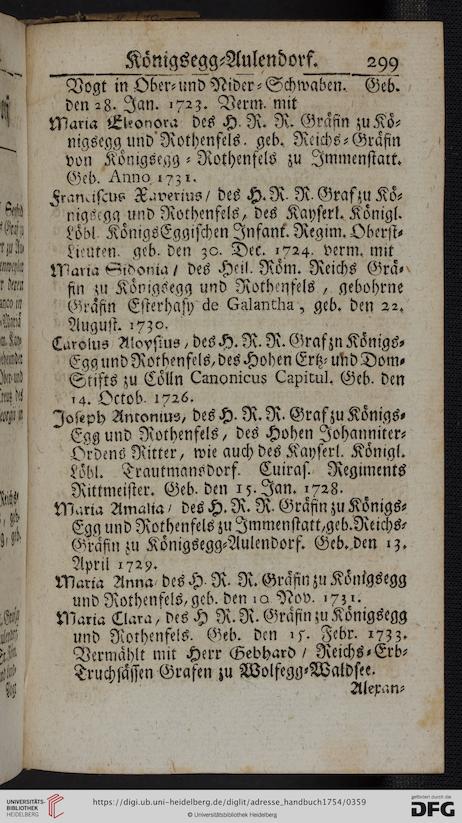 Königsegg-Aulendorf. 299
Vogt in Ober- und Nider-Schwaben. Geb.
den 28. Jan. 1723. Verm. mit
Maria Eleonora des H. R. R. Gräfin zu Kö-
nigsegg und Rothenfels. geb. Reichs-Gräfin
von Königsegg-Rothenfels zu Immenstatt.
Geb. Anno 1731.
Franciscus Xaverius / des H. R. R. Graf zu Kö-
nigsegg und Rothenfels, des Kayserl. Königl.
Löbl. KönigsEggischen Infant. Regim. Oberst-
Lieuten. geb. den 30. Dec. 1724. verm. mit
Maria Sidonia / des Heil. Röm. Reichs Grä-
fin zu Königsegg und Rothenfels, gebohrne
Gräfin Esterhasy de Galantha, geb. den 22.
August. 1730.
Carolus Aloysius, des H. R. R. Graf zu Königs-
Egg und Rothenfels, des Hohen Ertz- und Dom-
Stifts zu Cölln Canonicus Capitul. Geb. den
14. Octob. 1726.
Joseph Antonius, des H. R. R. Graf zu Königs-
Egg und Rothenfels, des Hohen Johanniter-
Ordens Ritter, wie auch des Kayserl. Königl.
Löbl. Trautmansdorf. Cuiras. Regiments
Rittmeister. Geb. den 15. Jan. 1728.
Maria Amalia / des H. R. R. Gräfin zu Königs-
Egg und Rothenfels zu Immenstatt, geb. Reichs-
Gräfin zu Königsegg-Aulendorf. Geb. den 13.
April 1729.
Maria Anna, des H. R. R. Gräfin zu Königsegg
und Rothenfels, geb. den 10 Nov. 1731.
Maria Clara, des H R. R. Gräfin zu Königsegg
und Rothenfels. Geb. den 15. Febr. 1733.
Vermählt mit Herr Gebhard / Reichs-Erb-
Truchsässen Grafen zu Wolfegg-Waldsee.
Alexan-
UNIVERSITÄTS-
BIBLIOTHEK
HEIDELBERG
https://digi.ub.uni-heidelberg.de/diglit/adresse_handbuch1754/0359
© Universitätsbibliothek Heidelberg
gefördert durch die
DFG